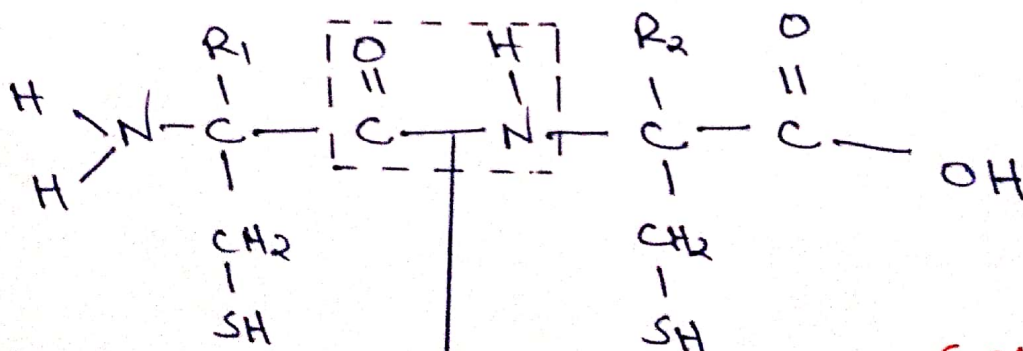 R1 O H R2 O
H N C C N C C OH
H
CH2 CH2
SH SH